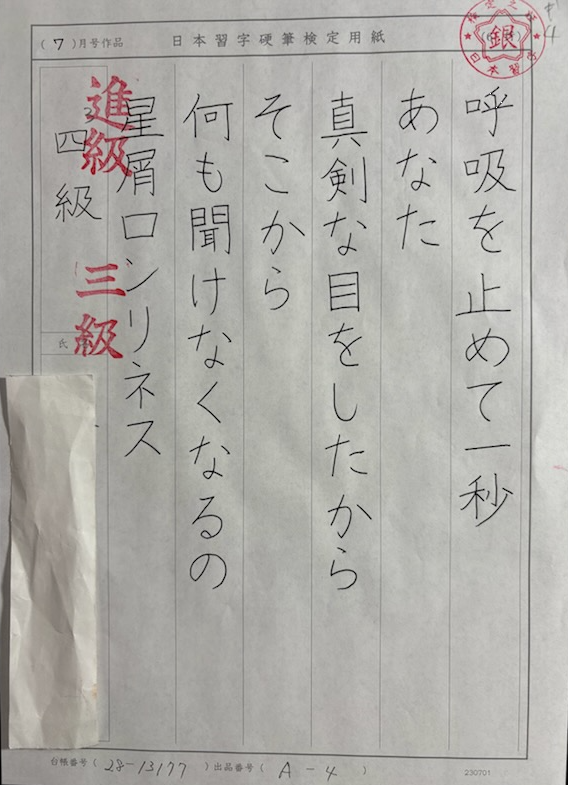 (7)月号作品 日本習字硬筆検定用紙
銀
呼吸を止めて一秒
あなた
真剣な目をしたから
そこから
何も聞けなくなるの
星屑ロンリネス
四級
進級
三級
氏
台帳番号(28-13177)出品番号(A-4)
230701